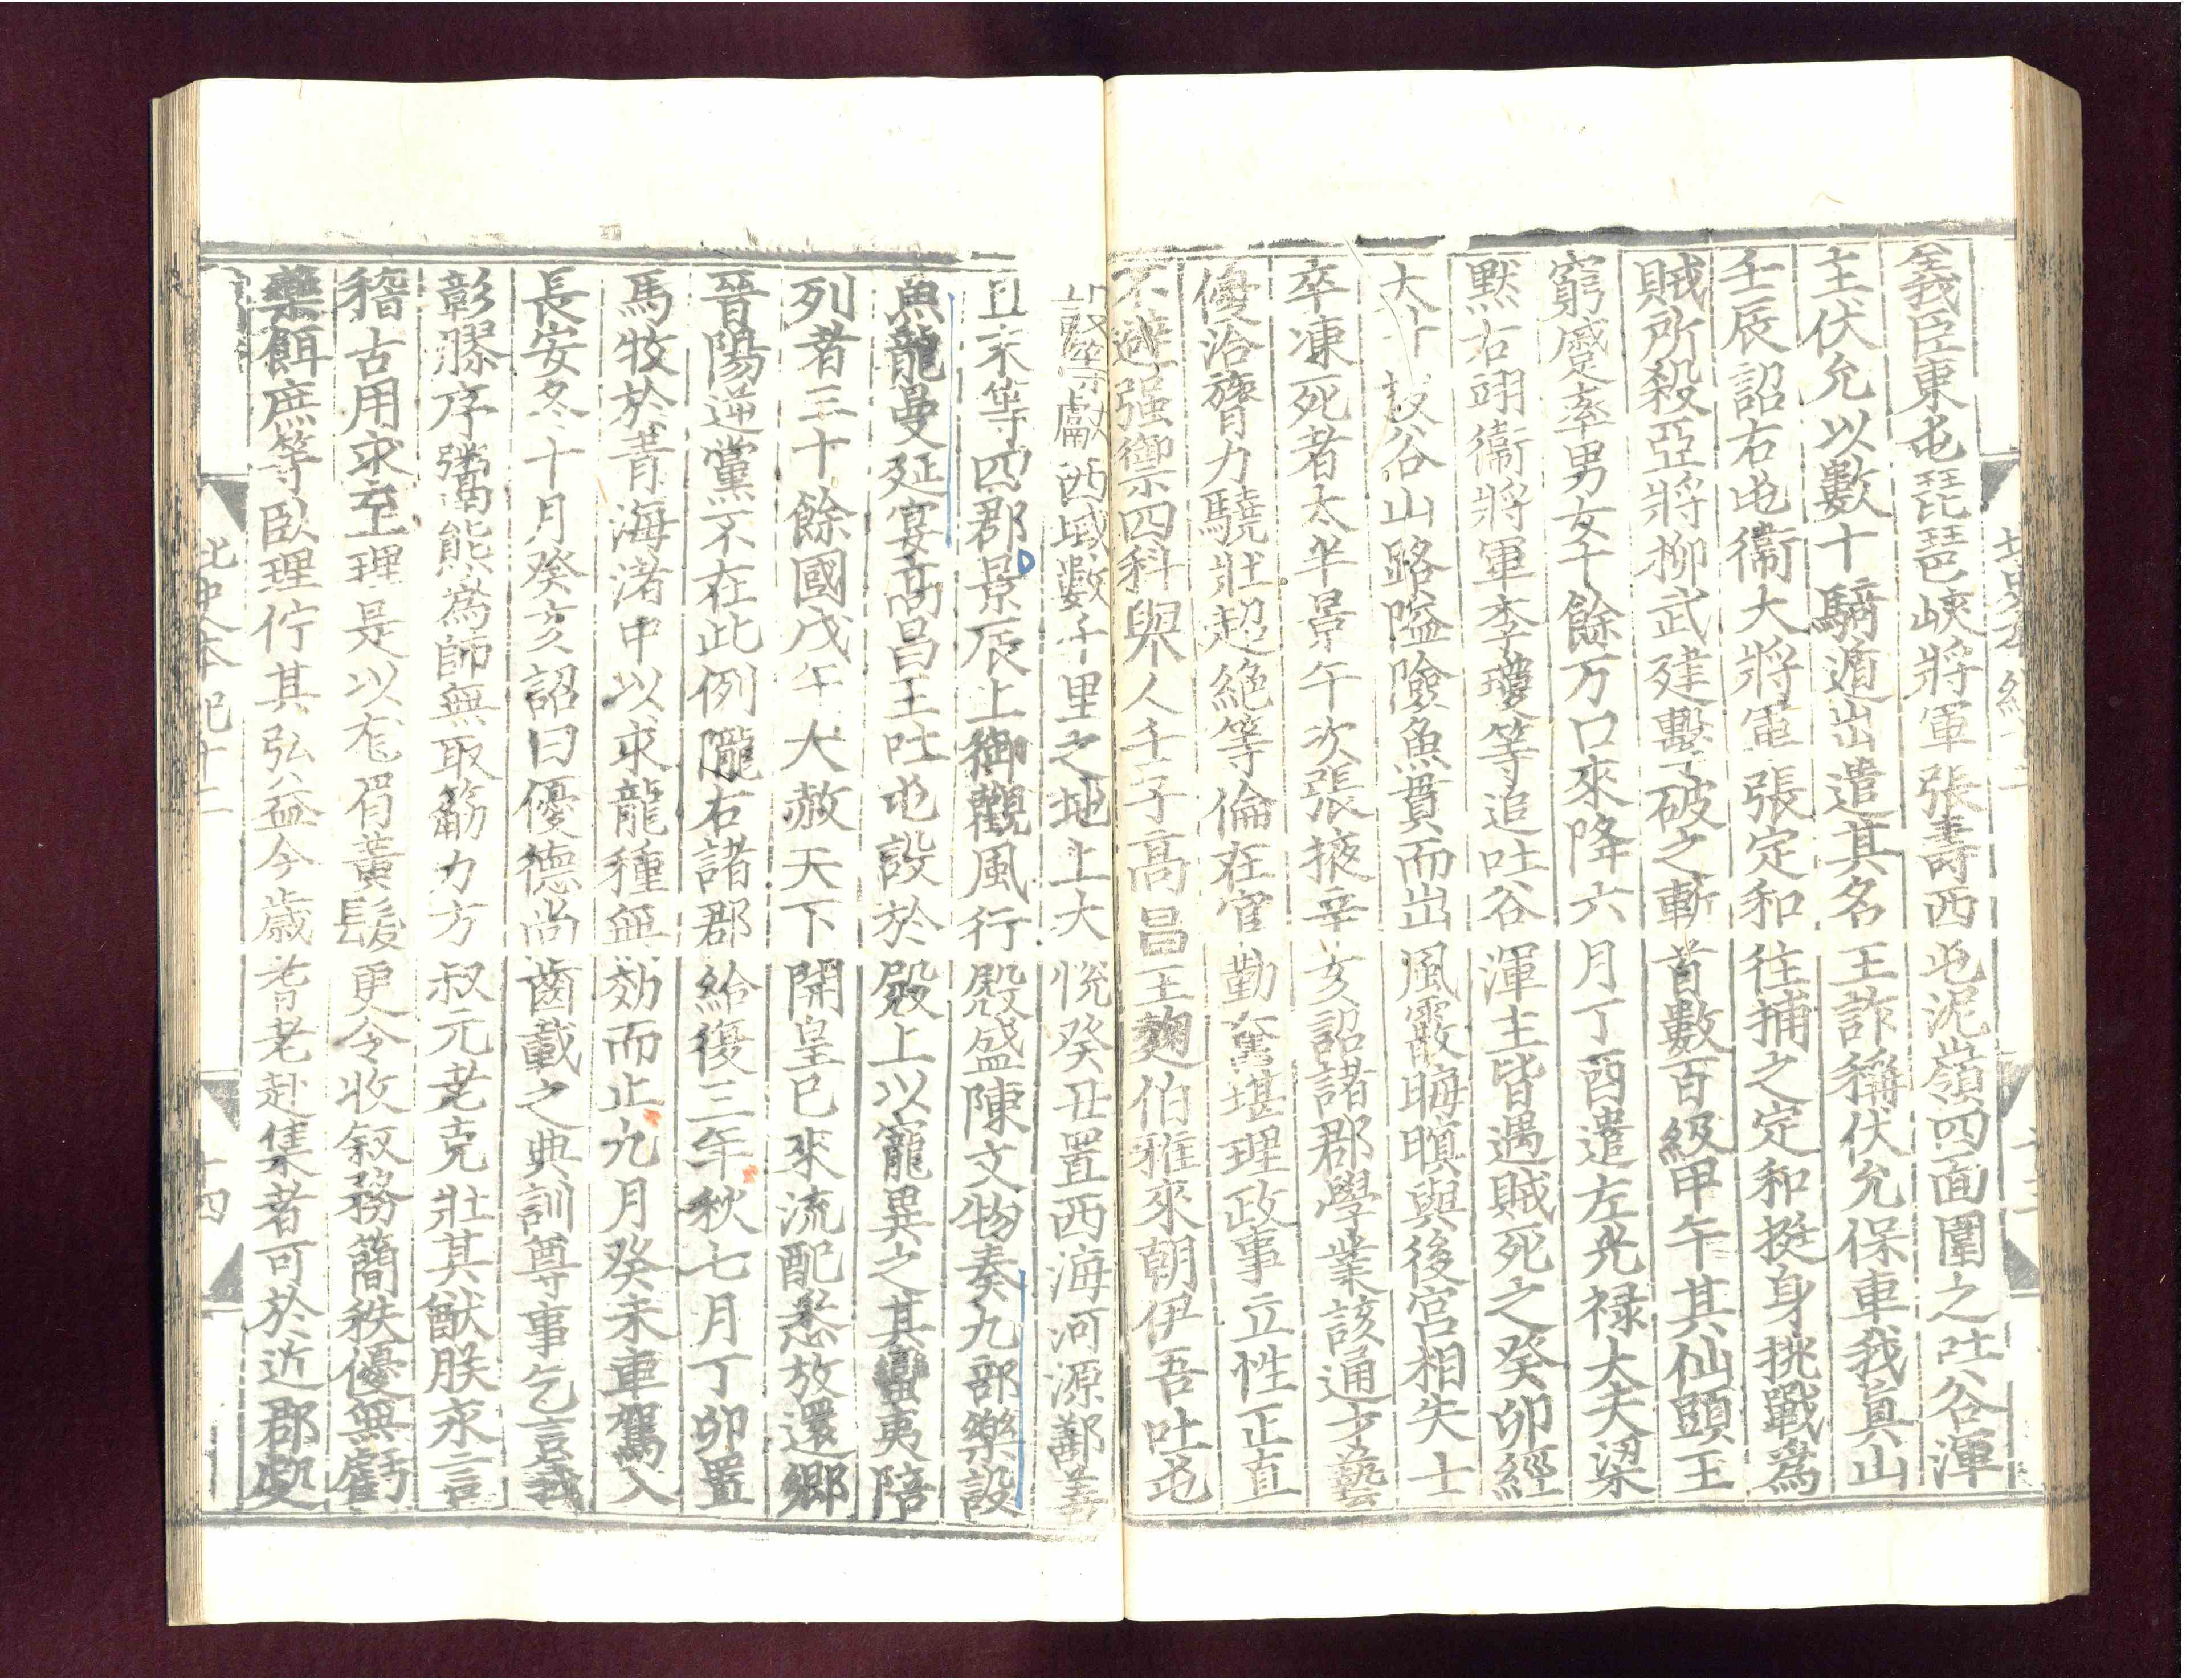 義臣東屯琵琶峽將軍張壽西屯泥嶺四面圍之吐谷渾
主伏允以數十騎遁出遣其名王詐稱伏允保車我眞山
壬辰詔右屯衞大將軍張定和往捕之定和挺身挑戰爲
賊所殺亞將柳武建擊破之斬首數百級甲午其仙頭王
窮蹙率男女十餘万口來降六月丁酉遣左光禄大夫梁
默右翊衞將軍李瓊等追吐谷渾主皆遇賊死之癸卯經
大斗谷山路隘險魚貫而出風霰晦暝與後宫相失士
卒凍死者太半景午次張掖辛亥詔諸郡學業該通才藝
優洽膂力驍壯超絶等倫在官勤奮堪理政事立性正直
不避强禦四科舉人壬子高昌王麴伯雅來朝伊吾吐屯
設等獻西域數千里之地上大恱癸丑置西海河源鄯善
且末等四郡景辰上御觀風行殿盛陳文物奏九部樂設
魚龍曼延宴高昌王吐屯設於殿上以寵異之其蠻夷陪
列者三十餘國戊午大赦天下開皇已來流配悉放還鄉
晉陽逆黨不在此例隴右諸郡給復三年秋七月丁卯置
馬牧於青海渚中以求龍種無効而止九月癸未車駕入
長安冬十月癸亥詔曰優德尚齒載之典訓尊事乞言義
彰膠序鬻熊爲師無取筋力方叔元老克壯其猷朕永言
稽古用求至理是以厖眉黃髮更令收叙務簡秩優無虧
藥餌庶等臥理佇其弘益今歲耆老赴集者可於近郡處
北史本紀十二
十四